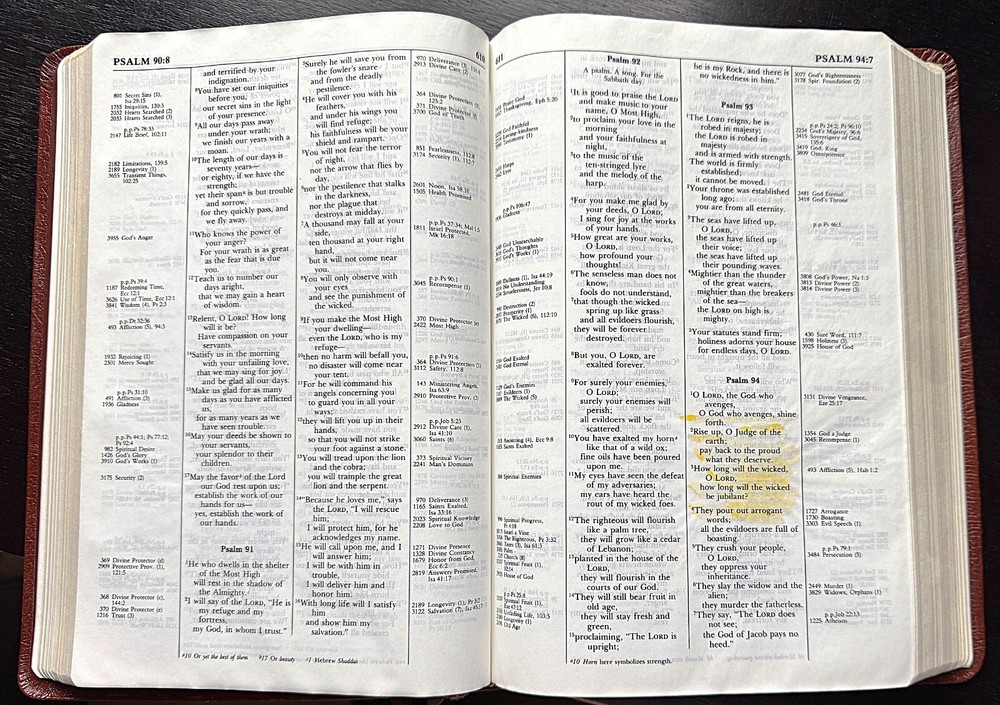 PSALM 90:8
610
801 Secret Sins (3),
Isa 29:15
1755 Iniquities, 130:3
2032 Hearts Searched (2)
2033 Hearts Searched (3)
p.p.Ps 78:33
2147 Life Brief, 102:11
2182 Limitations, 139:5
2189 Longevity (1)
3655 Transient Things,
102:25
3955 God's Anger
p.p.Ps 39:4
1187 Redeeming Time,
Ecc 12:1
3626 Use of Time, Ecc 12:1
3841 Wisdom (4), Pr 2:3
p.p.Dt 32:36
493 Affliction (5), 94:3
1932 Rejoicing (1)
2301 Mercy Sought
p.p.Ps 31:10
491 Affliction (3)
1936 Gladness
p.p.Ps 44:1; Ps 77:12,
Ps 92:4
982 Spiritual Desire
1426 God's Glory
3910 God's Works (1)
3175 Security (2)
369 Divine Protector (d)
2909 Protective Prov. (1),
121:5
368 Divine Protector (c),
144:2
370 Divine Protector (e)
1216 Trust (3)
and terrified by your
indignation.
8You have set our iniquities
before you,
our secret sins in the light
of your presence.
9All our days pass away
under your wrath;
we finish our years with a
moan.
10The length of our days is
seventy years—
or eighty, if we have the
strength;
yet their spana is but trouble
and sorrow,
for they quickly pass, and
we fly away.
11Who knows the power of
your anger?
For your wrath is as great
as the fear that is due
you.
12Teach us to number our
days aright,
that we may gain a heart
of wisdom.
13Relent, O LORD! How long
will it be?
Have compassion on your
servants.
14Satisfy us in the morning
with your unfailing love,
that we may sing for joy
and be glad all our days.
15Make us glad for as many
days as you have afflicted
us,
for as many years as we
have seen trouble.
16May your deeds be shown to
your servants,
your splendor to their
children.
17May the favora of the Lord
our God rest upon us;
establish the work of our
hands for us—
yes, establish the work of
our hands.
Psalm 91
1He who dwells in the shelter
of the Most High
will rest in the shadow of
the Almighty.
2I will say of the LORD, "He is
my refuge and my
fortress,
my God, in whom I trust."
3Surely he will save you from
the fowler's snare
and from the deadly
pestilence.
4He will cover you with his
feathers,
and under his wings you
will find refuge;
his faithfulness will be your
shield and rampart.
5You will not fear the terror
of night,
nor the arrow that flies by
day,
6nor the pestilence that stalks
in the darkness,
nor the plague that
destroys at midday.
7A thousand may fall at your
side,
ten thousand at your right
hand,
but it will not come near
you.
8You will only observe with
your eyes
and see the punishment of
the wicked.
9If you make the Most High
your dwelling—
even the LORD, who is my
refuge—
10then no harm will befall you,
no disaster will come near
your tent.
11For he will command his
angels concerning you
to guard you in all your
ways;
12they will lift you up in their
hands,
so that you will not strike
your foot against a stone.
13You will tread upon the lion
and the cobra;
you will trample the great
lion and the serpent.
14"Because he loves me," says
the LORD, "I will rescue
him;
I will protect him, for he
acknowledges my name.
15He will call upon me, and I
will answer him;
I will be with him in
trouble,
I will deliver him and
honor him.
16With long life will I satisfy
him
and show him my
salvation."
970 Deliverance (3)
2913 Divine Care (2)
364 Divine Protection (1),
125:2
371 Divine Protector
3700 God of Truth
851 Fearlessness, 112:8
3174 Security (1), 112:7
2601 Noon, Isa 58:10
1595 Health Promised
p.p.Ps 37:34; Mal 1:5
1811 Israel Protected,
Mk 16:18
p.p.Ps 90:1
3045 Recompense (1)
370 Divine Protector (e)
2422 Most High
p.p.Ps 91:6
364 Divine Protection (1)
3112 Safety, 112:8
143 Ministering Angels,
Isa 63:9
2910 Protective Prov. (2)
p.p.Job 5:23
2912 Divine Care (1),
Isa 41:10
3060 Saints (6)
373 Spiritual Victory
2241 Man's Dominion
970 Deliverance (3)
1165 Saints Exalted,
Isa 33:16
2023 Spiritual Knowledge
2208 Love to God
1271 Divine Presence
1328 Divine Constancy
1679 Honor from God,
Ecc 6:2
2819 Answers Promised,
Isa 41:17
2189 Longevity (1), Pr 3:2
3122 Salvation (7), Isa 45:17
a10 Or yet the best of them
a17 Or beauty
a1 Hebrew Shaddai
611
PSALM 94:7
Thanksgiving, Eph 5:20
God Faithful
Loving-kindness
Testimony (1)
Harps
Lyre
p.p.Ps 106:47
Gladness
God Unsearchable
God's Thoughts
God's Works (1)
Dullness (1), Isa 44:19
No Understanding
Senseless, Jer 10:8
Destruction (2)
Prosperity (1)
The Wicked (6), 112:10
God Exalted
God Eternal
God's Enemies
Evildoers (1)
The Wicked (5)
Anointing (4), Ecc 9:8
Saints Exalted
Spiritual Enemies
Spiritual Progress,
Pr 4:18
Israel a Vine
The Righteous, Pr 3:32
Trees (3), Isa 61:3
Palm
Church (8)
Spiritual Fruit (1),
House of God
p.p.Ps 25:8
Spiritual Fruit (1),
Unfailing Life, 103:5
Longevity (1)
Old Age
Psalm 92
A psalm. A song. For the
Sabbath day.
1It is good to praise the LORD
and make music to your
name, O Most High,
2to proclaim your love in the
morning
and your faithfulness at
night,
3to the music of the
ten-stringed lyre
and the melody of the
harp.
4For you make me glad by
your deeds, O LORD;
I sing for joy at the works
of your hands.
5How great are your works,
O LORD,
how profound your
thoughts!
6The senseless man does not
know,
fools do not understand,
7that though the wicked
spring up like grass
and all evildoers flourish,
they will be forever
destroyed.
8But you, O LORD, are
exalted forever.
9For surely your enemies,
O LORD,
surely your enemies will
perish;
all evildoers will be
scattered.
10You have exalted my horna
like that of a wild ox;
fine oils have been poured
upon me.
11My eyes have seen the defeat
of my adversaries;
my ears have heard the
rout of my wicked foes.
12The righteous will flourish
like a palm tree,
they will grow like a cedar
of Lebanon;
13planted in the house of the
LORD,
they will flourish in the
courts of our God.
14They will still bear fruit in
old age,
they will stay fresh and
green,
15proclaiming, "The LORD is
upright;
he is my Rock, and there is
no wickedness in him."
Psalm 93
1The LORD reigns, he is
robed in majesty;
the LORD is robed in
majesty
and is armed with strength.
The world is firmly
established;
it cannot be moved.
2Your throne was established
long ago;
you are from all eternity.
3The seas have lifted up,
O LORD,
the seas have lifted up
their voice;
the seas have lifted up
their pounding waves.
4Mightier than the thunder
of the great waters,
mightier than the breakers
of the sea—
the LORD on high is
mighty.
5Your statutes stand firm;
holiness adorns your house
for endless days, O LORD.
Psalm 94
1O LORD, the God who
avenges,
O God who avenges, shine
forth.
2Rise up, O Judge of the
earth;
pay back to the proud
what they deserve.
3How long will the wicked,
O LORD,
how long will the wicked
be jubilant?
4They pour out arrogant
words;
all the evildoers are full of
boasting.
5They crush your people,
O LORD;
they oppress your
inheritance.
6They slay the widow and the
alien;
they murder the fatherless.
7They say, "The LORD does
not see;
the God of Jacob pays no
heed."
3077 God's Righteousness
3178 Spir. Foundation (2)
p.p.Ps 24:2; Ps 96:10
2254 God's Majesty, 96:6
3415 Sovereignty of God,
135:6
3419 God, King
3809 Omnipotence
2481 God Eternal
3418 God's Throne
p.p.Ps 46:3
3808 God's Power, Na 1:3
3813 Divine Power (2)
3814 Divine Power (3)
430 Sure Word, 111:7
1598 Holiness (3)
3925 House of God
3131 Divine Vengeance,
Eze 25:17
1354 God a Judge
3045 Recompense (1)
493 Affliction (5), Hab 1:2
1722 Arrogance
1730 Boasting
3303 Evil Speech (1)
p.p.Ps 79:1
3484 Persecution (5)
2449 Murder (1)
3829 Widows, Orphans (1)
p.p.Job 22:13
1225 Atheism
a10 Horn here symbolizes strength.